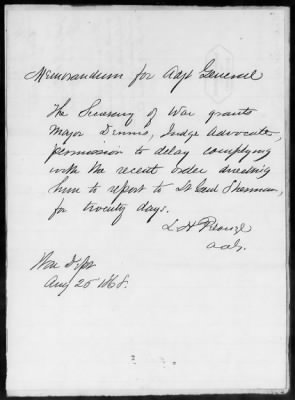 Memorandum for Adjt General
The Secretary of War grants
Major Dennis, Judge Advocate,
permission to delay complying
with the recent order directing
him to report to Lt Genl Sherman,
for twenty days.
L H Pelouze
a a g.
War Dept
Aug 25 1868.